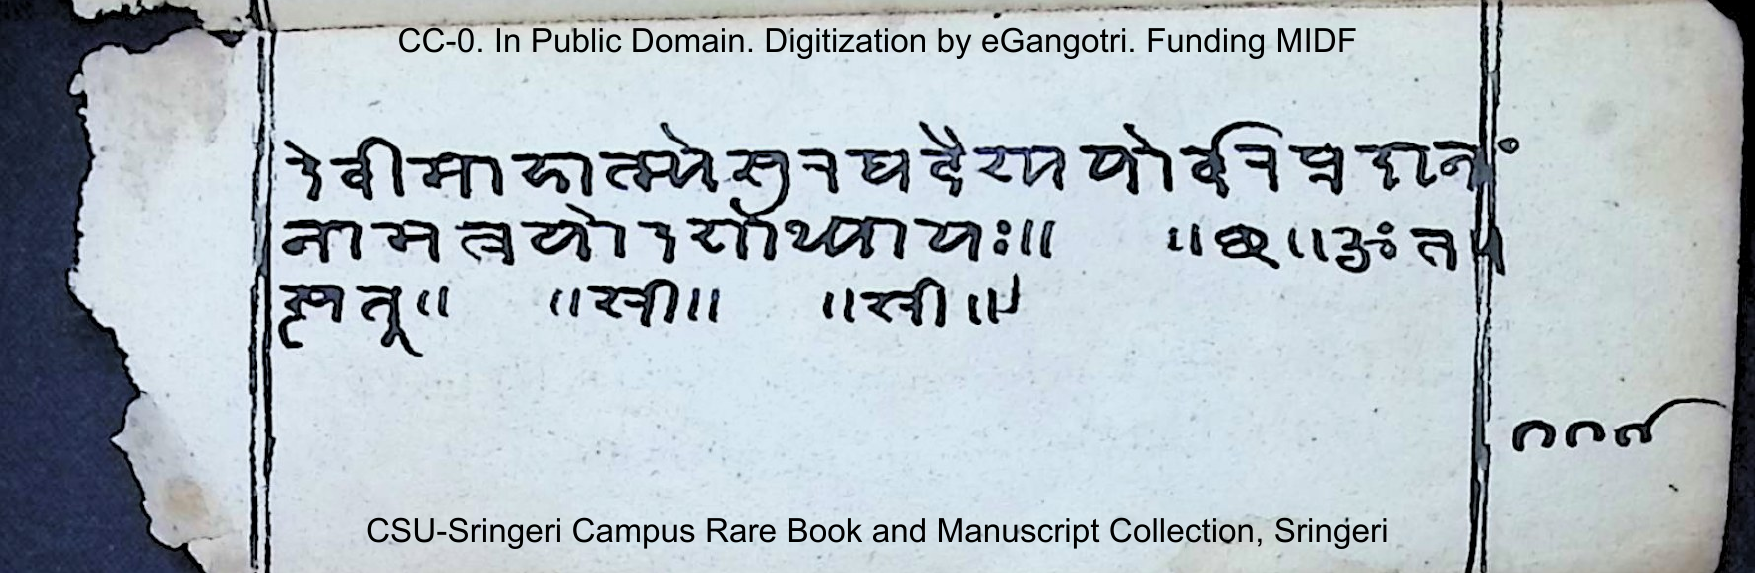 CC-0. In Public Domain. Digitization by eGangotri. Funding MIDF
देवीमाहात्म्ये सुरथवैश्ययोर्वरप्रदानं
नाम त्रयोदशोध्यायः॥ ॥१३॥ॐ त
त्सत्॥ ॥श्री॥ ॥श्री॥
CSU-Sringeri Campus Rare Book and Manuscript Collection, Sringeri